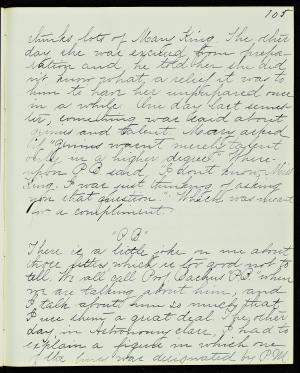 105
thinks lots of Mary King. The other
day she was excused from prepa-
ration and he told her she did
not know what a relief it was to
him to have her unprepared once
in a while. One day last semes-
ter, something was said about
genius and talent. Mary asked
if "genius wasn't merely talent
only in a higher degree". Where-
upon P.B. said, "I don't know, Miss
King. I was just thinking of asking
you that question". Which was meant
for a compliment.
"P.B."
There is a little joke on me about
those which is too good not to
tell. We all call Prof. Backus P.B. when
we are talking about him, and
I talk about him so much that
I use them a great deal. The other
day in Astronomy class, I had to
explain a figure in which one
of the lines was designated by P.M